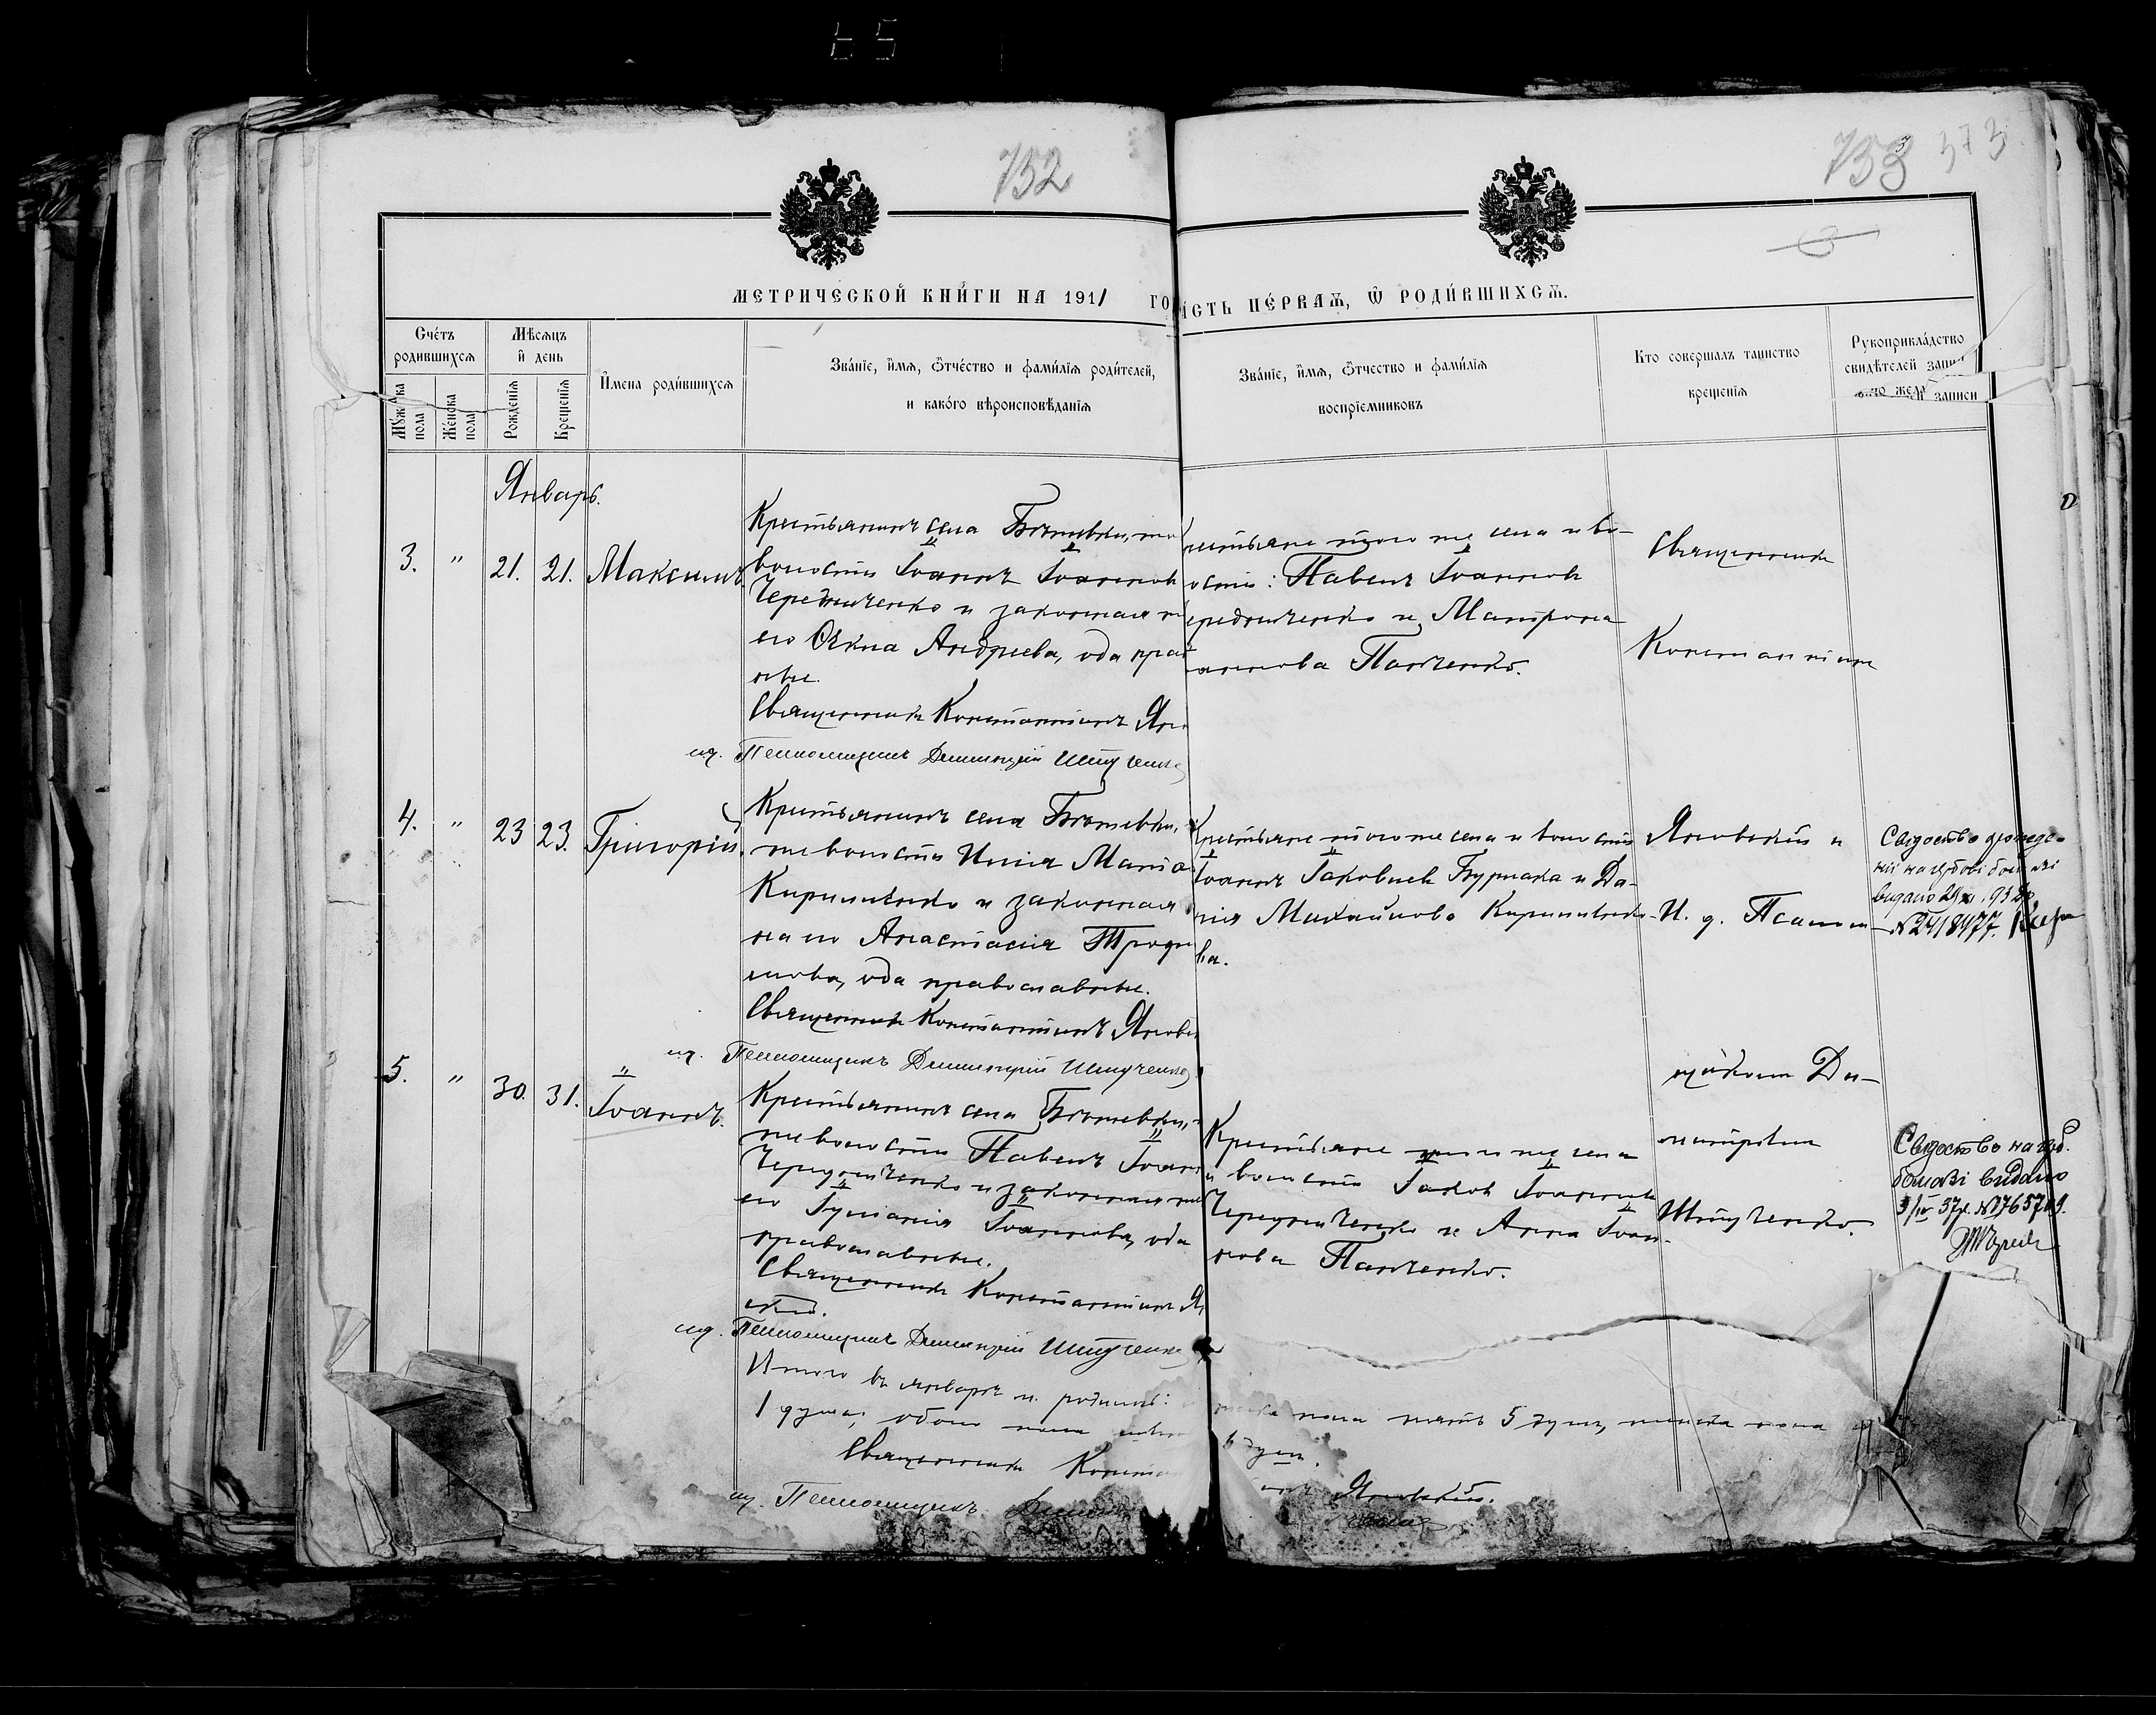 65
752
753
373
МЕТРИЧЕСКОЙ КНИ́ГИ НА 1911 ГО
ІСТЬ ПЕ́РВАѦ, Ѽ РОДИ́ВШИХСѦ.
Сче́тъ родившихсѧ
Мѣсѧцъ и҆ день
Му́жска пола
Же́нска пола
Рожденїѧ
Крещенїѧ
И҆мена роди́вшихсѧ
Зва́нїе, и҆мѧ, ѻ҆тче́ство и фами́лїѧ роди́телей,
и како́го вѣроисповѣ́данїѧ
Зва́нїе, и҆мѧ, ѻ҆тчество и фами́лїѧ
воспрїемниковъ
Кто совершалъ таинство
крещенїѧ
Рукоприкла́дство
свидѣтелей запи
записи
Январь.
3. " 21. 21. Максимъ
Крестьянинъ села
волости Іоаннъ Іоаннов
Чередниченко и законная
его Андреева, оба прав
ные.
Священникъ Константинъ Ян
Псаломщикъ Димитрій Шпученко
того же села и во-
ости: Павелъ Іоаннов
ередниченко и Матрона
аннова Панченко.
Священникъ
Константинъ
4. " 23 23. Григорій
Крестьянинъ села
же волости Илія
Кириленко и законная
на его Анастасія Трофи
мова, оба православные.
Священникъ Константинъ Яновс
Псаломщикъ Димитрій Шпученко
Крестьяне того же села и волости
Іоаннъ Іаковлев Бурлака и Да-
рія Михайлова Кириленко-
ва.
Яновскій и
И. д. Псалом-
Свідоство
видано
№ 2418477.
5. " 30. 31. Іоаннъ.
Крестьянинъ села
же волости Павелъ Іоанн
Чередниченко и законная
его Іуліанія Іоаннова, оба
православные.
Священникъ Константинъ Я
скій.
Псаломщикъ Димитрій Шпученко
Крестьяне того же села
и волости Іаков Іоаннов
Чередниченко и Анна Іоан-
нова Панченко.
щикомъ Ди-
митріемъ
Шпученко.
Свідоство на
видано
Итого въ январѣ м. родилось:
1 душа, обоего пола
пола пять 5 душ, женска пола
6 душъ.
Священникъ Констан
Яновскій.
Псаломщикъ